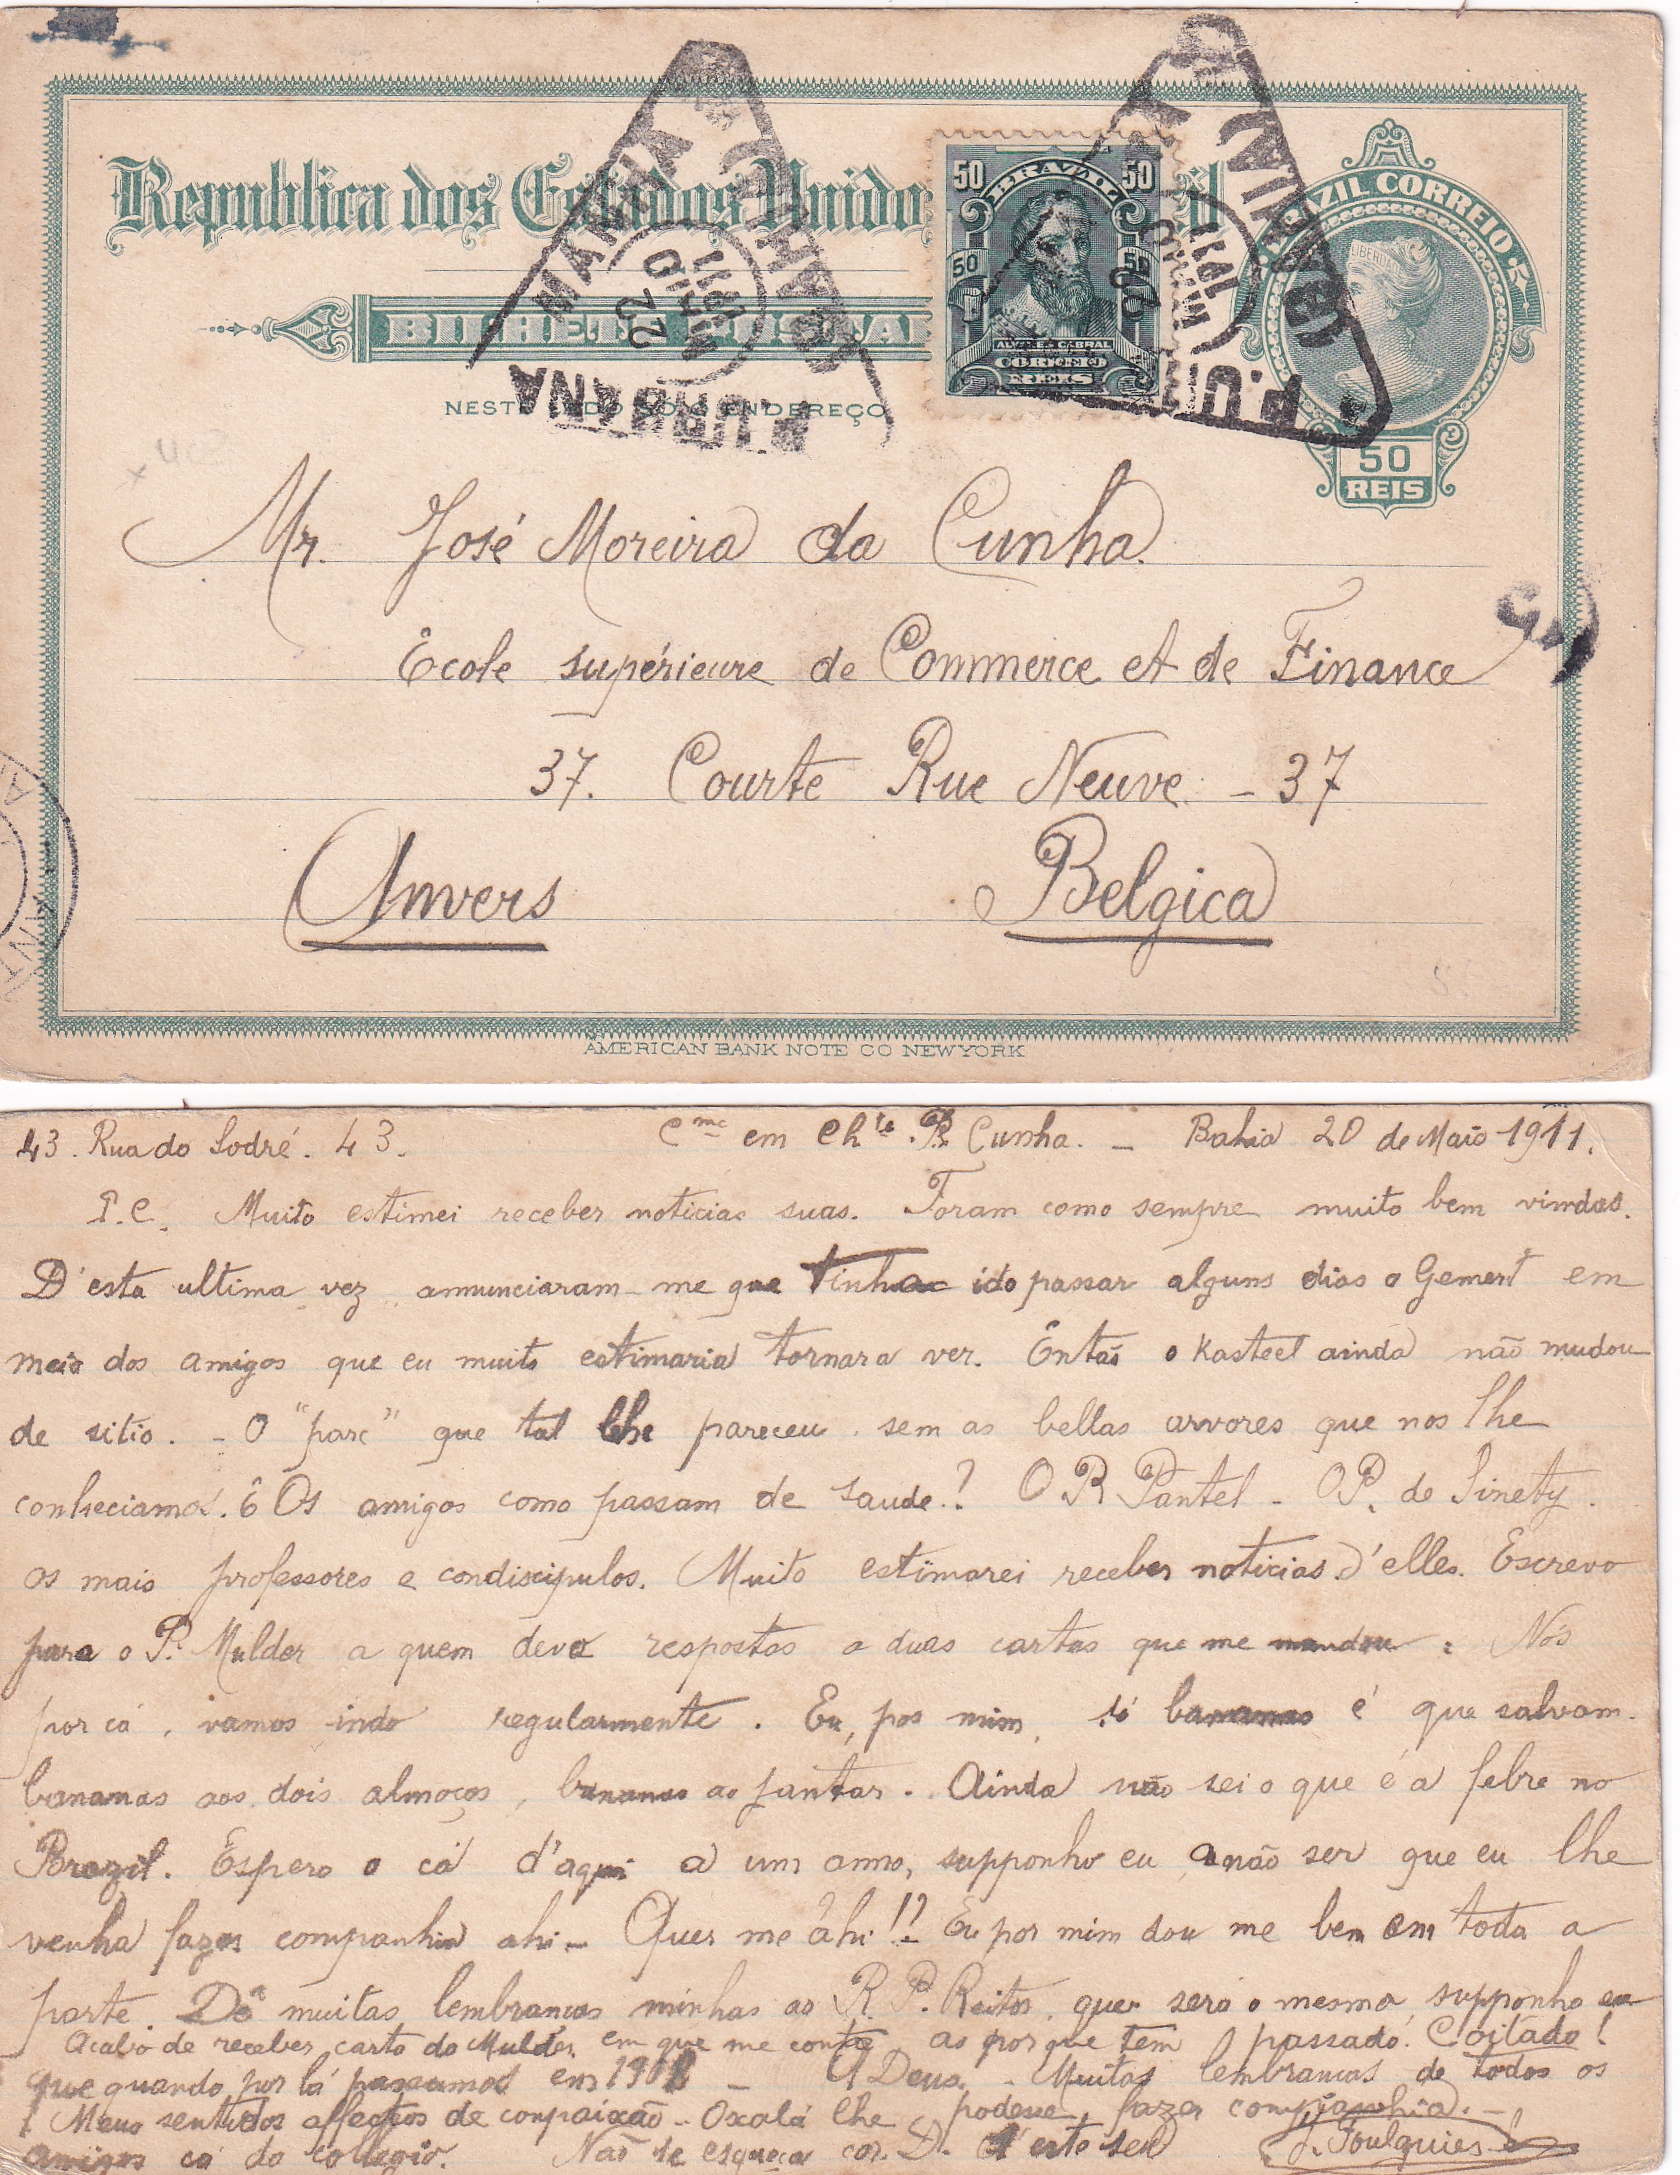 Republica dos Estados Unidos
BRAZIL CORREIO
BRAZIL
50 50
50 50
ALVARES CABRAL
CORREIO
REIS
BILHETE POSTAL
NESTE LADO SÓ O ENDEREÇO
50
REIS
MANHÃ
22
MAIO
1911
P.URBANA
22
MAIO
1911
P.UR
Mr. José Moreira da Cunha.
École supérieure de Commerce et de Finance
37. Courte Rue Neuve. – 37
Anvers Belgica
AMERICAN BANK NOTE CO NEW YORK
43. Rua do Sodré. 43. Cmc em Chto. P. Cunha. – Bahia 20 de Maio 1911.
P.C. Muito estimei receber noticias suas. Foram como sempre muito bem vindas.
D'esta ultima vez annunciaram-me que tinha ido passar alguns dias a Gemert em
meio dos amigos que eu muito estimaria tornar a ver. Então o Kasteel ainda não mudou
de sitio. – O "parc" que tal lhe pareceu sem as bellas arvores que nos lhe
conheciamos. E Os amigos como passam de saude.? O P. Pantel – O P. de Sinety.
os mais professores e condiscipulos. Muito estimarei receber noticias d'elles. Escrevo
para o P. Mulder a quem devo respostas a duas cartas que me mandou. Nós
por cá, vamos indo regularmente. Eu, por mim, só bananas é que salvam.
bananas aos dois almoços, bananas ao jantar. Ainda não sei o que é a febre no
Brazil. Espero o cá d'aqui a um anno, supponho eu a não ser que eu lhe
venha fazer companhia ahi – Quer me ahi!? Eu por mim dou me bem em toda a
parte. Dê muitas lembranças minhas ao R. P. Reitor, que será o mesmo supponho eu
Acabo de receber carta do Mulder em que me conta as por que tem passado. Coitado!
que quando por lá passamos em 190 – A Deus. – Muitas lembranças de todos os
Meus sentidos affectos de compaixão – Oxalá lhe podesse fazer companhia. –
amigos cá do collegio. Não se esqueça cor. D. d'este seu J. Foulquier